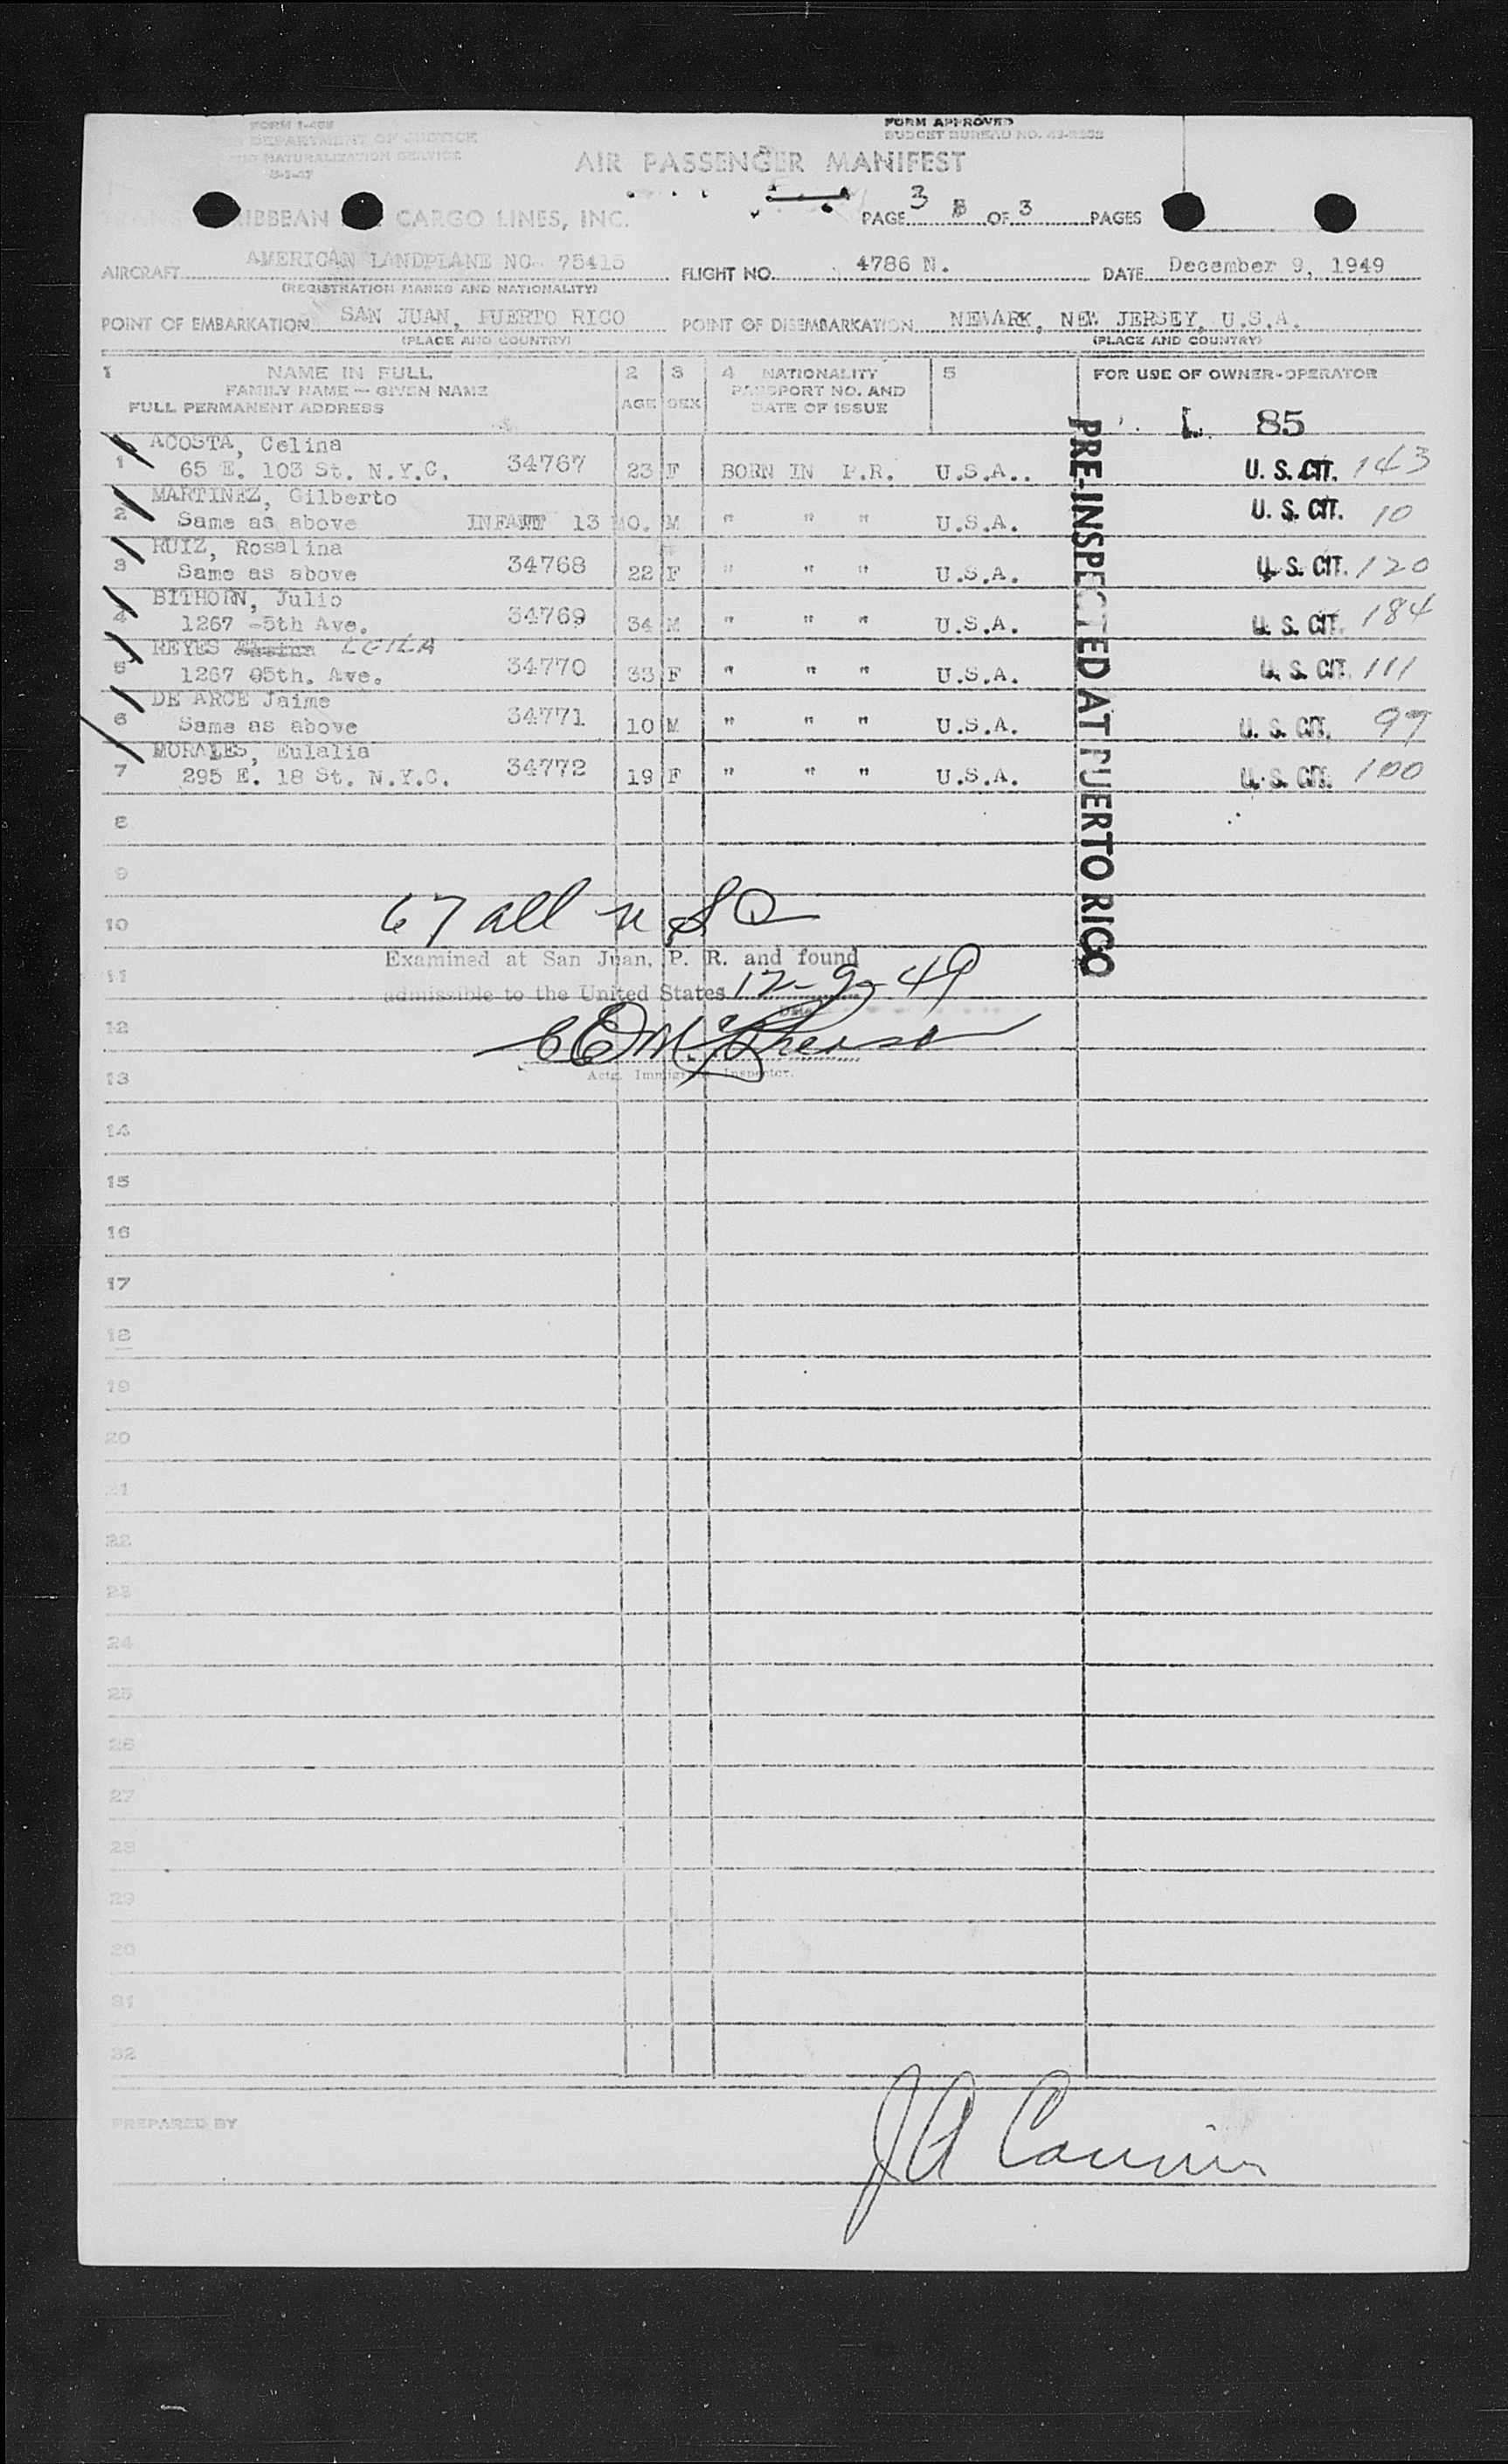 FORM I-466
DEPARTMENT OF JUSTICE
NATURALIZATION SERVICE
FORM APPROVED
BUDGET BUREAU NO.
AIR PASSENGER MANIFEST
CARGO LINES, INC.
PAGE 3 OF 3 PAGES
AIRCRAFT AMERICAN LANDPLANE NO. 75415 FLIGHT NO. 4786 N. DATE December 9, 1949
(REGISTRATION MARKS AND NATIONALITY)
POINT OF EMBARKATION SAN JUAN, PUERTO RICO POINT OF DISEMBARKATION NEWARK, NEW JERSEY, U.S.A.
(PLACE AND COUNTRY) (PLACE AND COUNTRY)
1 NAME IN FULL 2 3 4 NATIONALITY 5 FOR USE OF OWNER-OPERATOR
FAMILY NAME — GIVEN NAME PASSPORT NO. AND
FULL PERMANENT ADDRESS AGE SEX DATE OF ISSUE
L 85
ACOSTA, Celina
1 65 E. 103 St. N.Y.C. 34767 23 F BORN IN P.R. U.S.A.. U. S. CIT. 143
MARTINEZ, Gilberto
2 Same as above INFANT 13 MO. M " " " U.S.A. U. S. CIT. 10
RUIZ, Rosalina
3 Same as above 34768 22 F " " " U.S.A. U. S. CIT. 120
BITHORN, Julio
4 1267 -5th Ave. 34769 34 M " " " U.S.A. U. S. CIT. 184
REYES LEILA
5 1267 05th. Ave. 34770 33 F " " " U.S.A. U. S. CIT. 111
DE ARCE Jaime
6 Same as above 34771 10 M " " " U.S.A. U. S. CIT. 99
MORALES, Eulalia
7 295 E. 18 St. N.Y.C. 34772 19 F " " " U.S.A. U. S. CIT. 100
PRE-INSPECTED AT PUERTO RICO
8
9
10
67 all
Examined at San Juan, P. R. and found
11
admissible to the United States 12-9-49
Date
12
13
Actg. Immigrant Inspector.
14
15
16
17
18
19
20
21
22
23
24
25
26
27
28
29
30
31
32
PREPARED BY